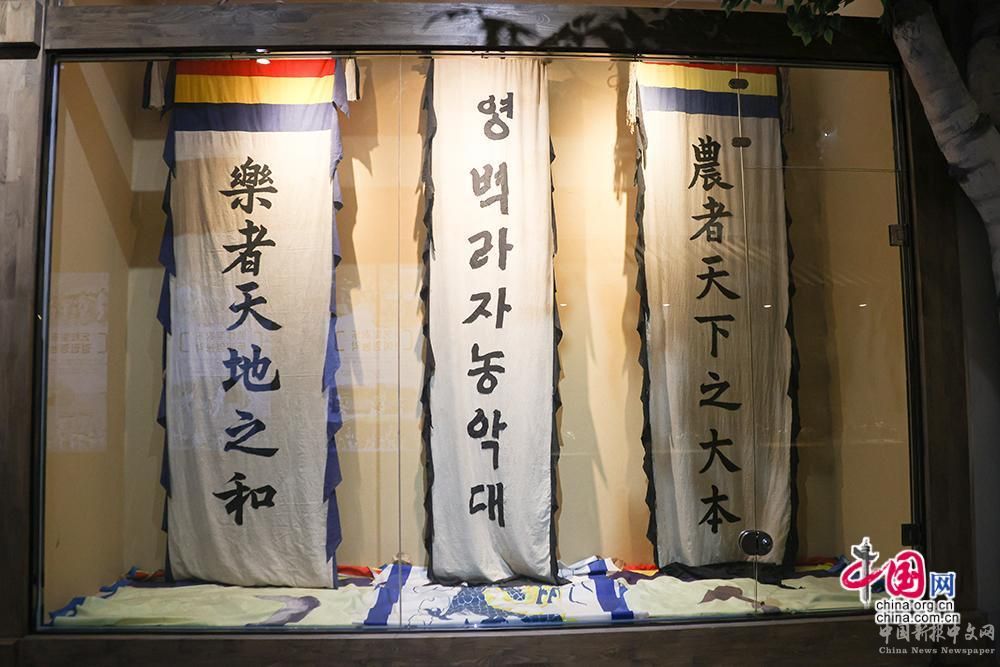 樂者天地之和
영벽라자농악대
農者天下之大本
中国网
china.org.cn
china.com.cn
中国新报中文网
China News Newspaper